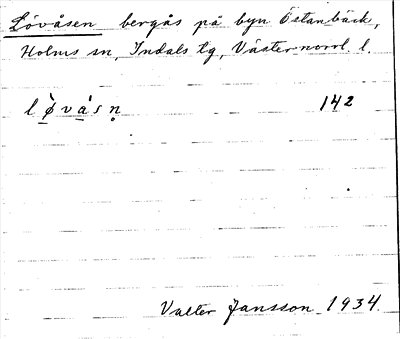 Lövåsen bergås på byn Östanbäck,
Holms sn, Indals tg, Västernorrl. l.
lø̀vàsn̥ 142
Valter Jansson 1934.